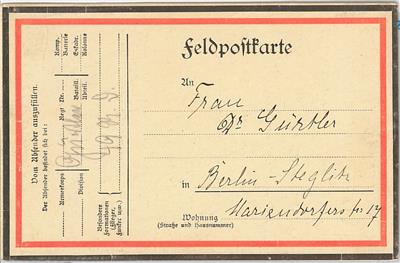 Feldpostkarte
An
Frau
Dr Gürtler
in Berlin-Steglitz
Mariendorferstr 17
Wohnung
(Straße und Hausnummer)
Vom Absender auszufüllen.
Der Absender befindet sich bei:
Armeekorps
Division
Regt Nr.
Bataill.
Abteil.
Komp.
Batterie
Eskadr.
Kolonne
Besondere
Formationen
(Flieger,
Funker usw.)